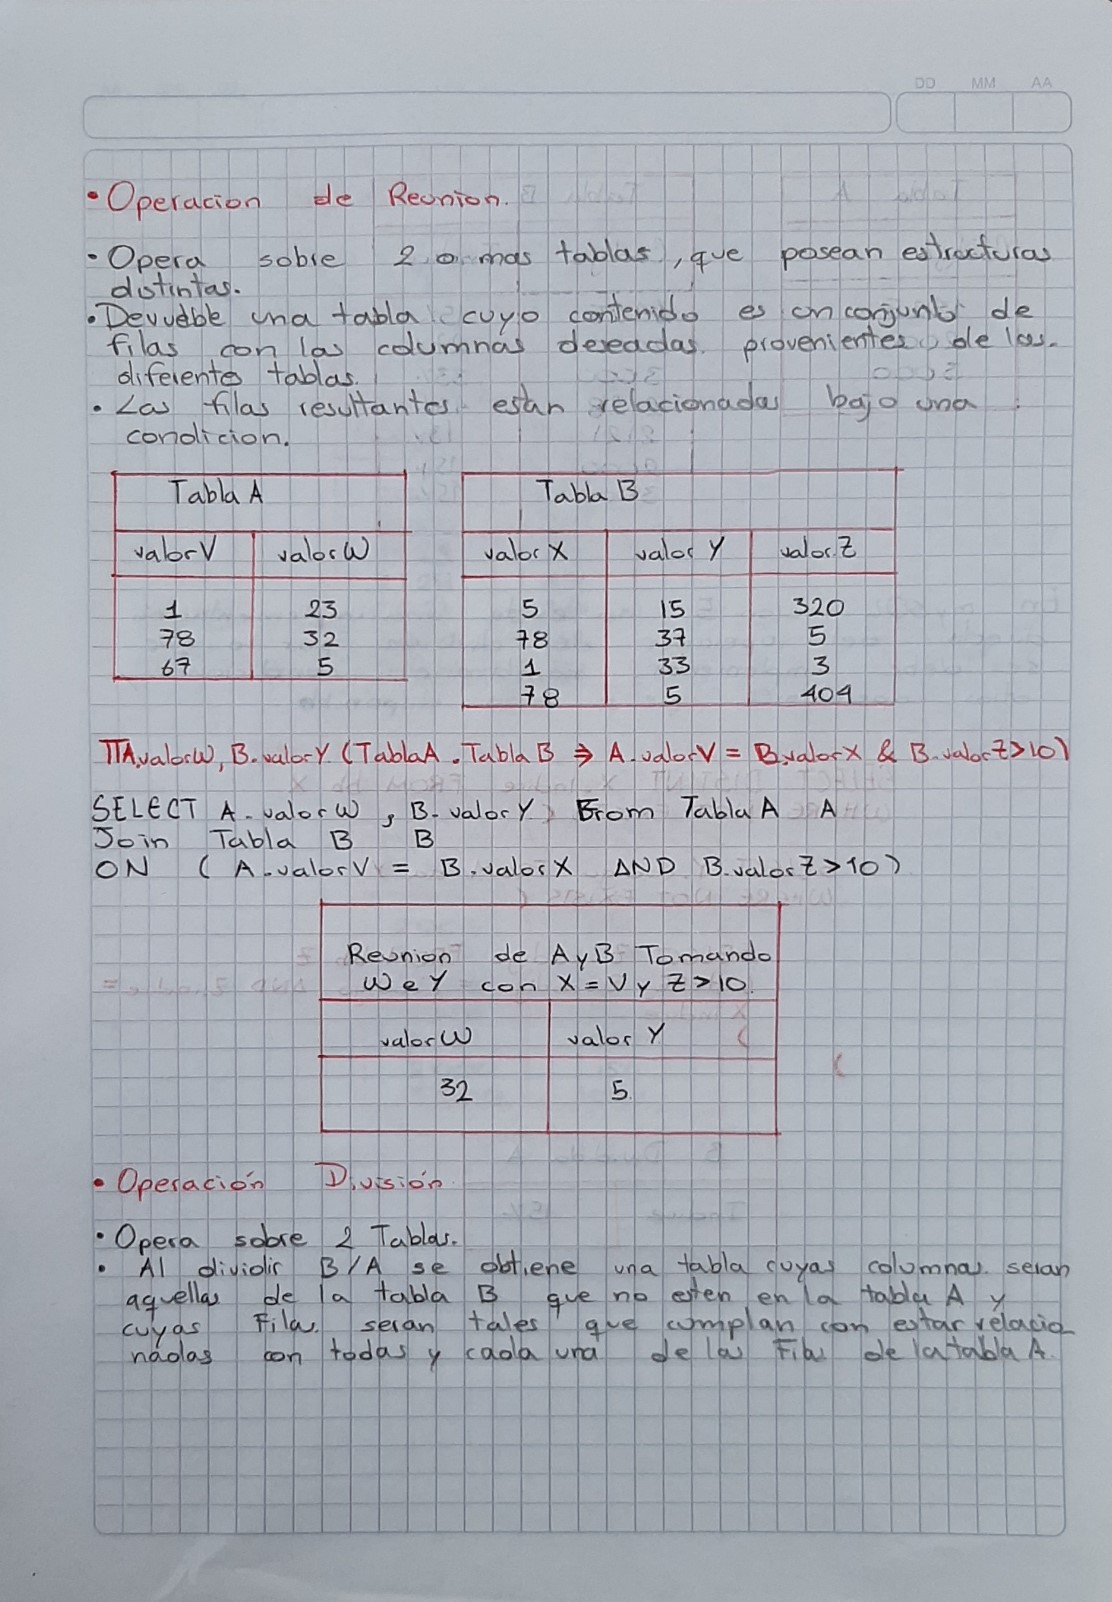 DD MM AA
• Operacion de Reunion.
• Opera sobre 2 o mas tablas, que posean estructuras
distintas.
• Devuelve una tabla cuyo contenido es un conjunto de
filas con las columnas deseadas provenientes de las
diferentes tablas.
• Las filas resultantes estan relacionadas bajo una
condicion.
Tabla A Tabla B
valorV valorW valorX valorY valorZ
1 23 5 15 320
78 32 78 37 5
67 5 1 33 3
78 5 404
πA.valorW, B.valorY (TablaA . TablaB ⇒ A.valorV = B.valorX & B.valorZ>10)
SELECT A.valorW , B.valorY From Tabla A A
Join Tabla B B
ON ( A.valorV = B.valorX AND B.valorZ>10)
Reunion de A y B Tomando
W e Y con X = V y Z>10.
valorW valorY
32 5
• Operación División
• Opera sobre 2 Tablas.
• Al dividir B/A se obtiene una tabla cuyas columnas seran
aquellas de la tabla B que no esten en la tabla A y
cuyas Filas seran tales que cumplan con estar relacio
nadas con todas y cada una de las Filas de la tabla A.